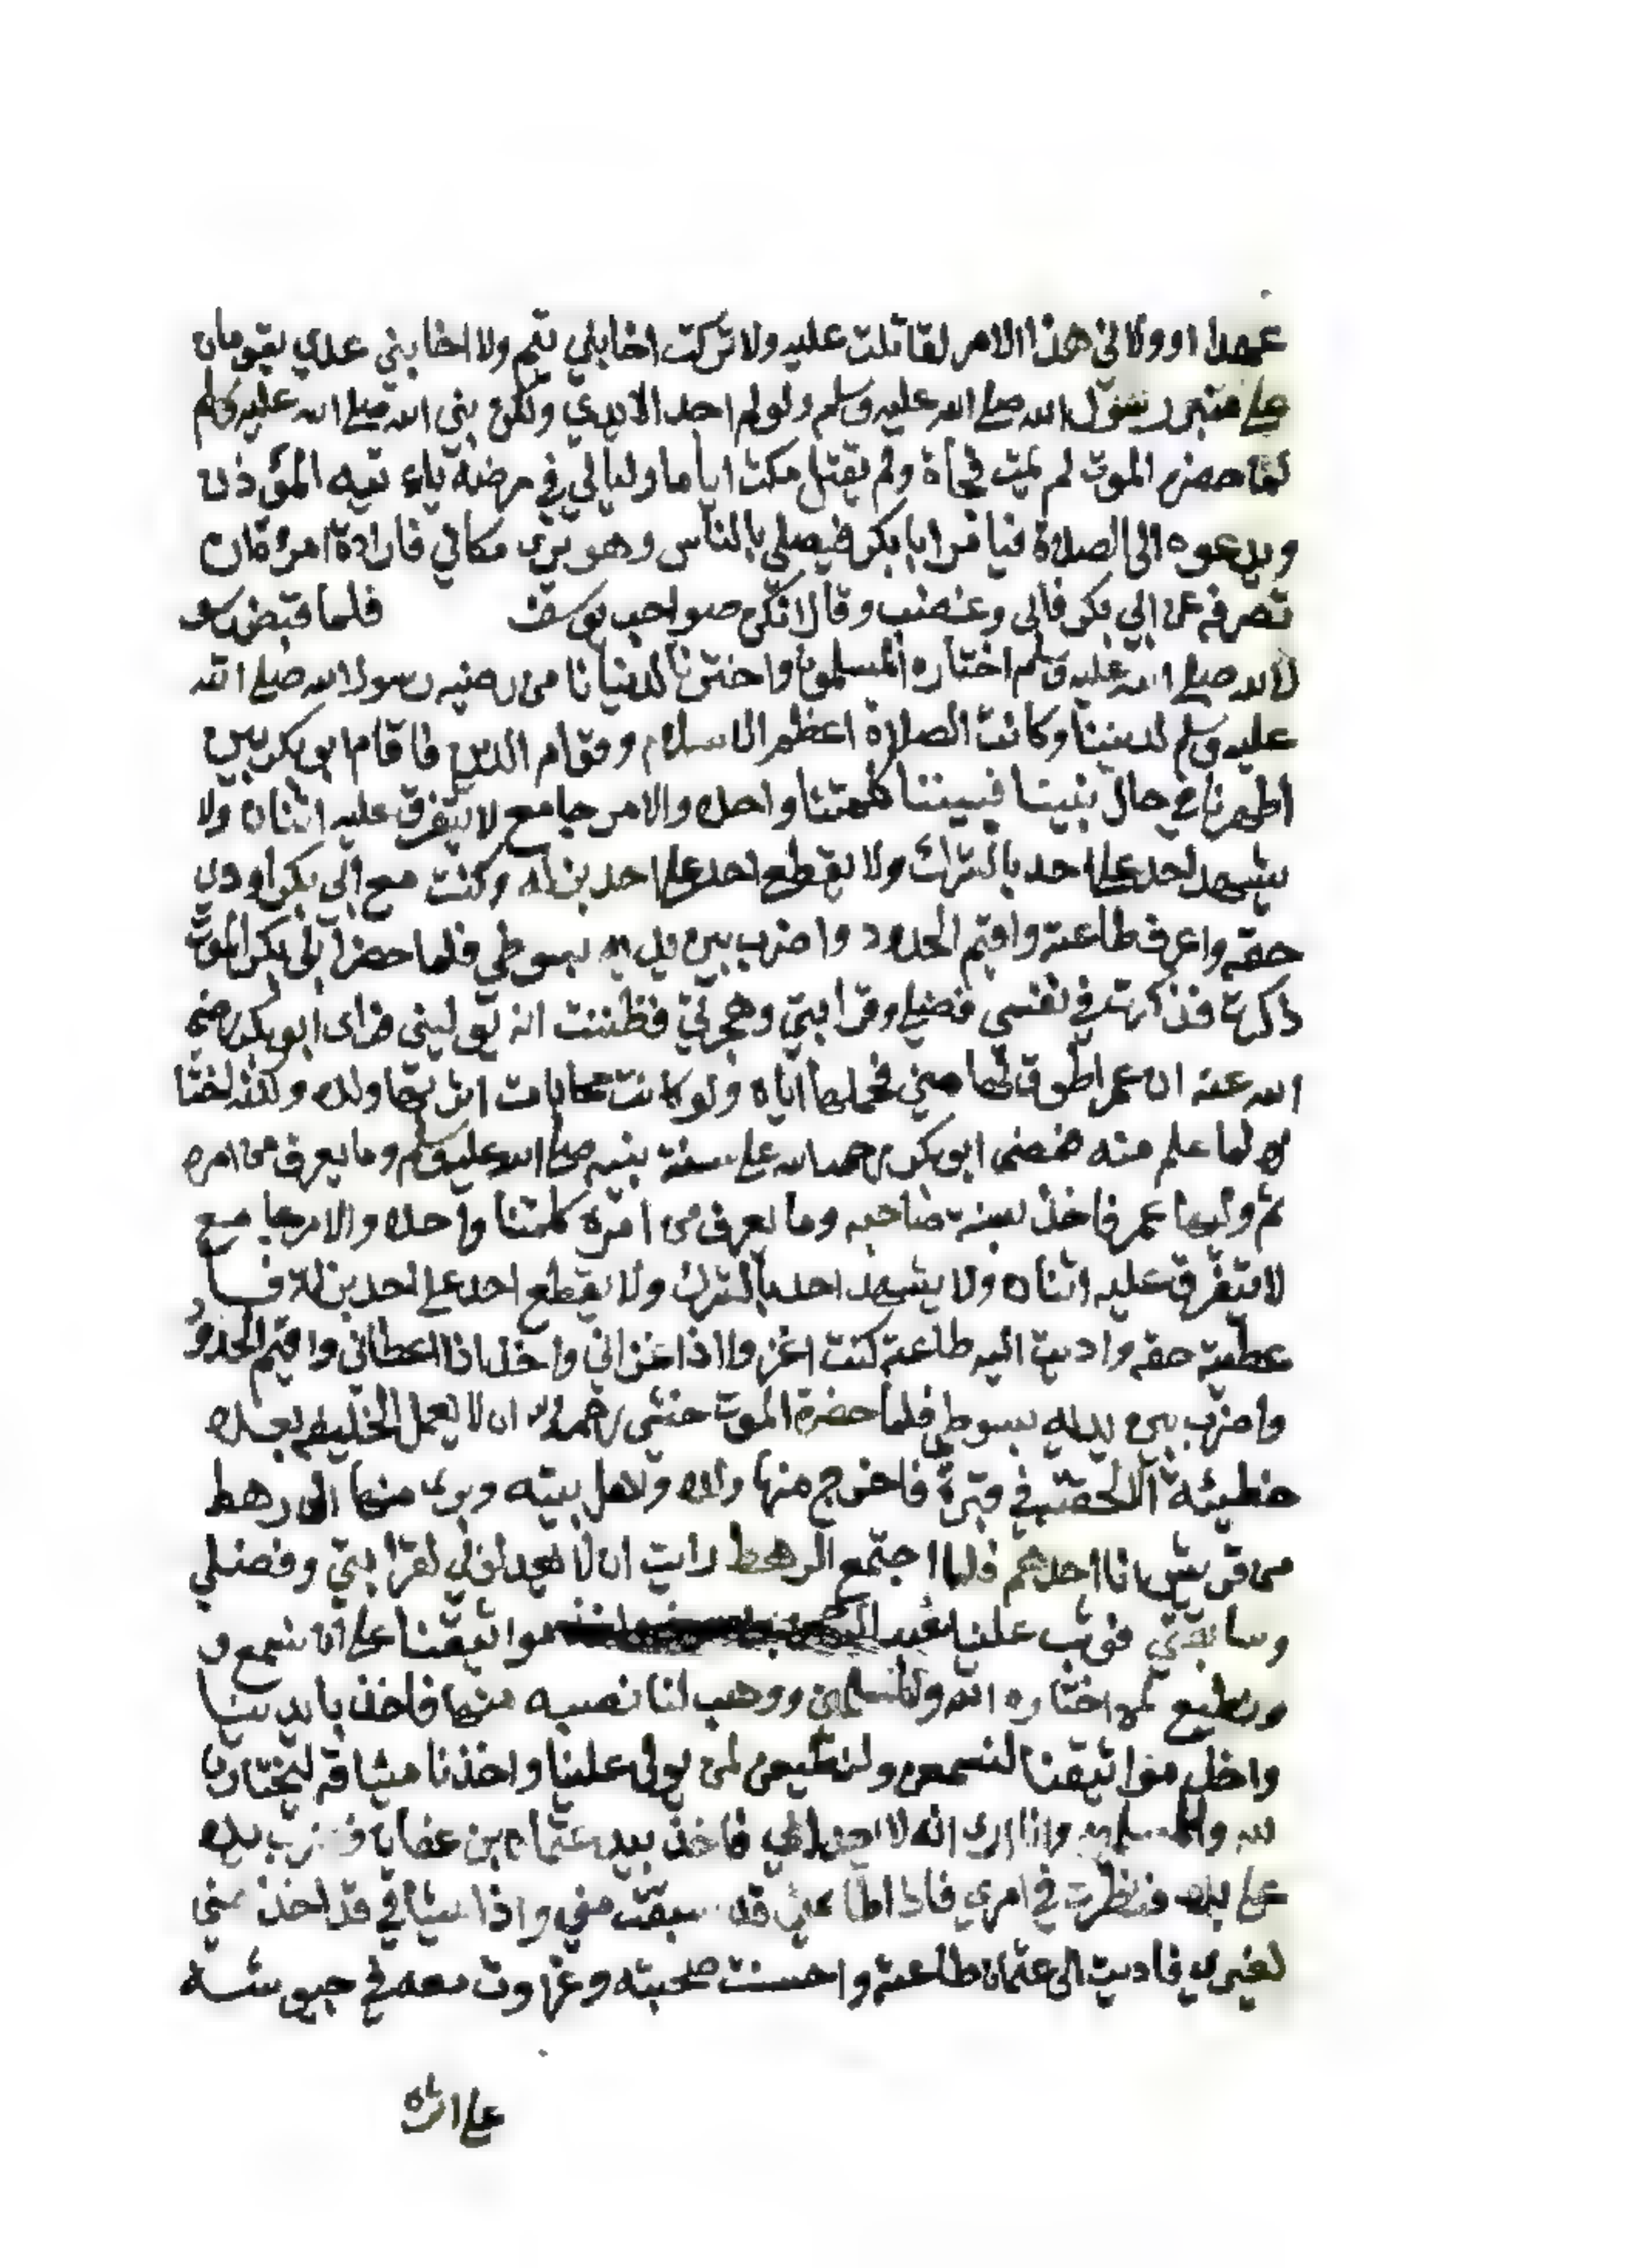 عهدا او ولاني هذا الامر لقاتلت عليه ولا تركت اخا بني تيم ولا اخا بني عدي يقومان
على منبر رسول الله صلى الله عليه وسلم ولو لم اجد الا يدي ولكن نبي الله صلى الله عليه وسلم
لما حضره الموت لم يمت فجاة ولم يقتل مكث اياما وليالي في مرضه ياءتيه المؤذن
ويدعوه الى الصلاة فيامر ابا بكر فيصلي بالناس وهو يرى مكاني فارادة امرءة ان
تصرفه عن ابي بكر فابى وغضب وقال انكن صواحب يوسف فلما قبض رسو
ل الله صلى الله عليه وسلم اختاره المسلمون واخترنا لدنيانا من رضيه رسول الله صلى الله
عليه وسلم لديننا وكانت الصلاة اعظم الاسلام وقوام الدين فاقام ابو بكر بين
اظهرنا في حال نبينا فبيننا كلمتنا واحده والامر جامع لا يتفرق عليه اثنان ولا
يشهد احد على احد بالشرك ولا يقطع احد على احد بزله وكنت مع ابي بكر اودي
حقه واعرف طاعته واقيم الحدود واضرب بين يديه بسوطي فلما حضر ابي بكر الموت
ذاكرت فذاكرت في نفسي فضلي وقرابتي وهجرتي فظننت انه يوليني فراى ابو بكر رضى
الله عنه ان عمر اطوق لها مني فحملها اياه ولو كانت محابات اثر بها ولده ولكنه اختا
ره لما علم منه فمضى ابو بكر رحمه الله على سنة نبيه صلى الله عليه وسلم وما يعرف من امره
ثم وليها عمر فاخذ بسنة صاحبه وما يعرف من امره كلمتنا واحده والامر جامع
لا يتفرق عليه اثنان ولا يشهد احد بالشرك ولا يقطع احد على احد بزلة فا
عطيته حقه واديت اليه طاعته كنت اغزوا اذا اغزاني واخذ اذا اعطاني واقيم الحدود
واضرب بين يديه بسوطي فلما حضرة الموت خشي رحمه الله ان لا يعمل الخليفه بعده
خطيئة الا لحقته في قبرة فاخرج منها ولده ولاهل بيته وبرى منها الى رهط
من قريش انا احدهم فلما اجتمع الرهط رايت ان لا يعدلوني لقرابتي وفضلي
وسابقتي فوثب علينا عبد مواثيقنا على ان نسمع و
ونطيع لمن اختاره الله وللمسلمين ووهب لنا نصيبه منها فاخذ بايدينا
واخذ مواثيقنا لنسمعن ولنطيعن لمن يولى علينا واخذنا ميثاقه ليختارن
لله وللمسلمين وانا ارى انه لا يعدلني فاخذ بيد عثمان بن عفان فضرب بيده
على يده فنظرت في امري فاذا طاعتي قد سبقت مني واذا ميثاقي قد اخذ مني
لغيري فاديت الى عثمان طاعته واحسنت صحبته وغزوت معه في جيوشه
على اثره